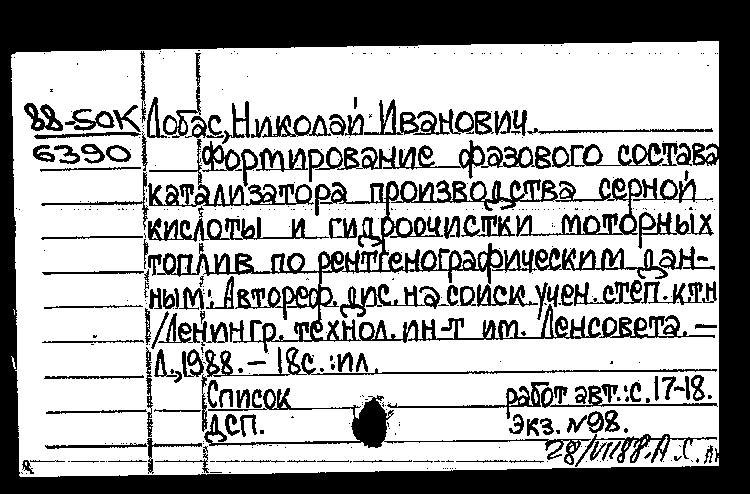 88-50К Лобас, Николай Иванович.
6390 Формирование фазового состава
катализатора производства серной
кислоты и гидроочистки моторных
топлив по рентгенографическим дан-
ным: Автореф. дис. на соиск. учен. степ. к.т.н
/Ленингр. технол. ин-т им. Ленсовета. —
Л., 1988. — 18с.: ил.
Список работ авт.: с. 17-18.
ДСП. Экз. №98.
28/VII88.